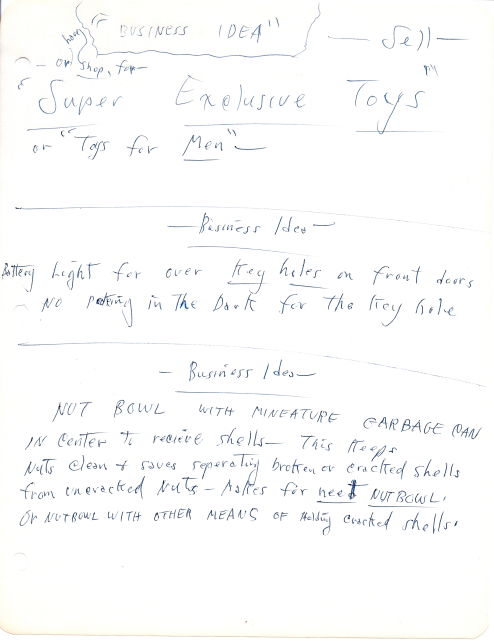 "BUSINESS IDEA"
— Sell —
or have shop, for —
"Super Exclusive Toys"
or "Toys for Men" —
— Business Idea —
Battery Light for over Key holes on front doors
NO poking in the Dark for the Key hole
— Business Idea —
NUT BOWL WITH MINEATURE GARBAGE CAN
IN Center to recieve shells — This Keeps
Nuts Clean & saves seperating broken or cracked shells
from uncracked Nuts — Makes for neat NUTBOWL.
Or NUTBOWL WITH OTHER MEANS OF Holding cracked shells.